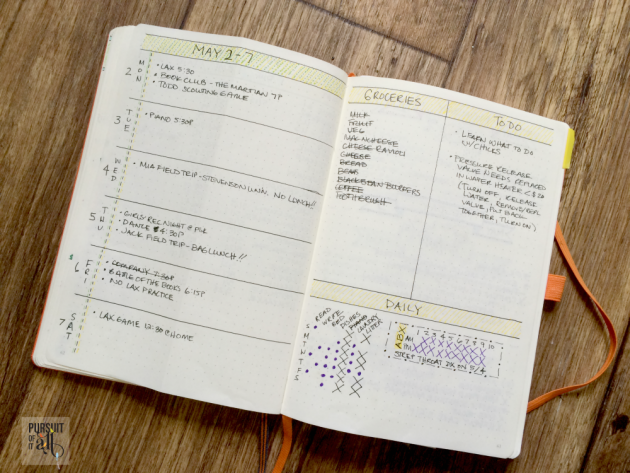 MAY 2-7
2 MON
• LAX 5:30
• BOOK CLUB - THE MARTIAN 7P
• TODD SCOUTING EAGLE
3 TUE
• PIANO 5:30P
4 WED
• MIA FIELD TRIP - STEVENSON UNIV. NO LUNCH!!
5 THU
• GIRLS REC NIGHT
• DANCE 4:30P
• JACK FIELD TRIP - BAG LUNCH!!
6 FRI
• COMPANY 7:30P
• BATTLE OF THE BOOKS 6:15P
• NO LAX PRACTICE
7 SAT
• LAX GAME 12:30P HOME
GROCERIES
MILK
FRUIT
VEG
MAC N CHEESE
CHEESE RAVIOLI
CHEESE
BREAD
BEER
BLACK BEAN BURGERS
COFFEE
TO DO
• LEARN WHAT TO DO
W/CHICKS
• PRESSURE RELEASE
VALVE NEEDS REPLACED
IN WATER HEATER < $20
(TURN OFF RELEASE
WATER, REMOVE/REPL
VALVE, PUT BACK
TOGETHER, TURN ON)
DAILY
READ
WRITE
DISHES
PIANO
LAUNDRY
LITTER
S
M
T
W
T
F
S
ABX
1 2 3 4 5 6 7 8 9 10
AM
PM
STREP THROAT DX ON 5/4
PURSUIT
OF IT
all